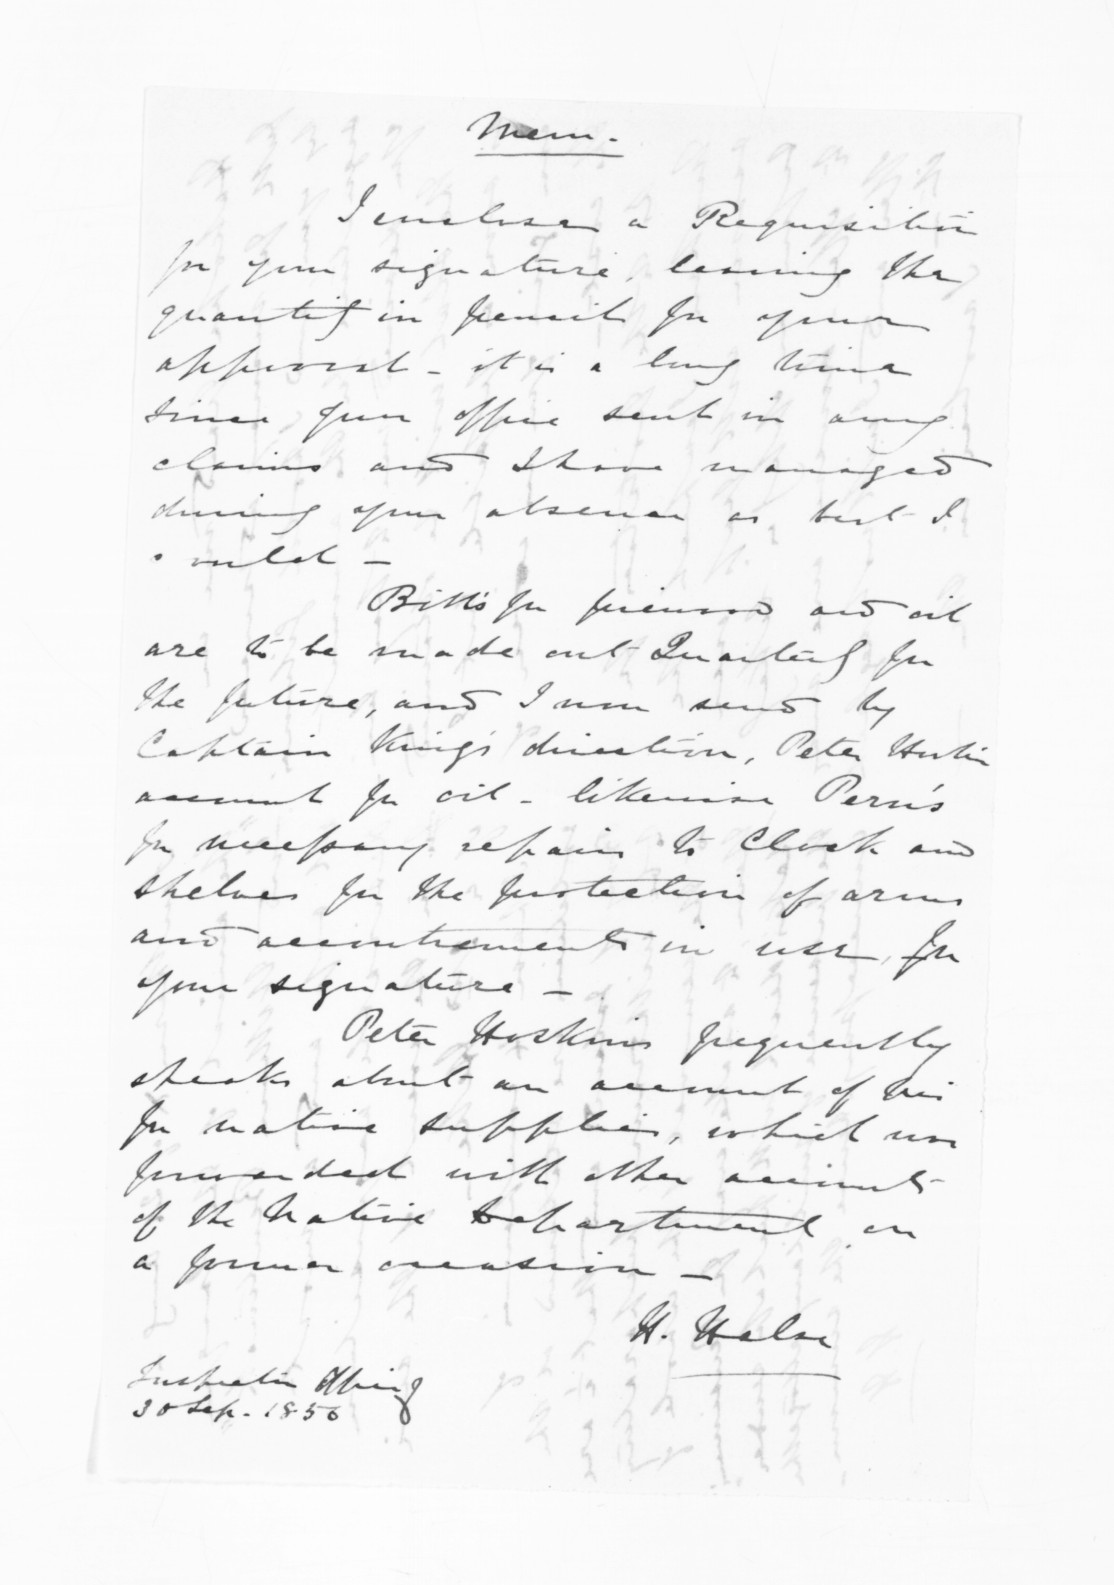 Mem.
I enclose a Requisition
for your signature, leaving the
quantity in pencil for your
approval - it is a long time
since your office sent in any
claims and I have managed
during your absence as best I
could -
Bills for firewood and oil
are to be made out Quarterly for
the future, and I now send by
Captain King's direction, Peter
account for oil - likewise
for necessary repairs to Clock and
shelves for the protection of arms
and accoutrements in use, for
your signature -
Peter Hoskins frequently
speaks about an account of his
for native supplies, which was
forwarded with other accounts
of the Native Department on
a former occasion -
H. Halse
Inspector
30 Sep. 1850